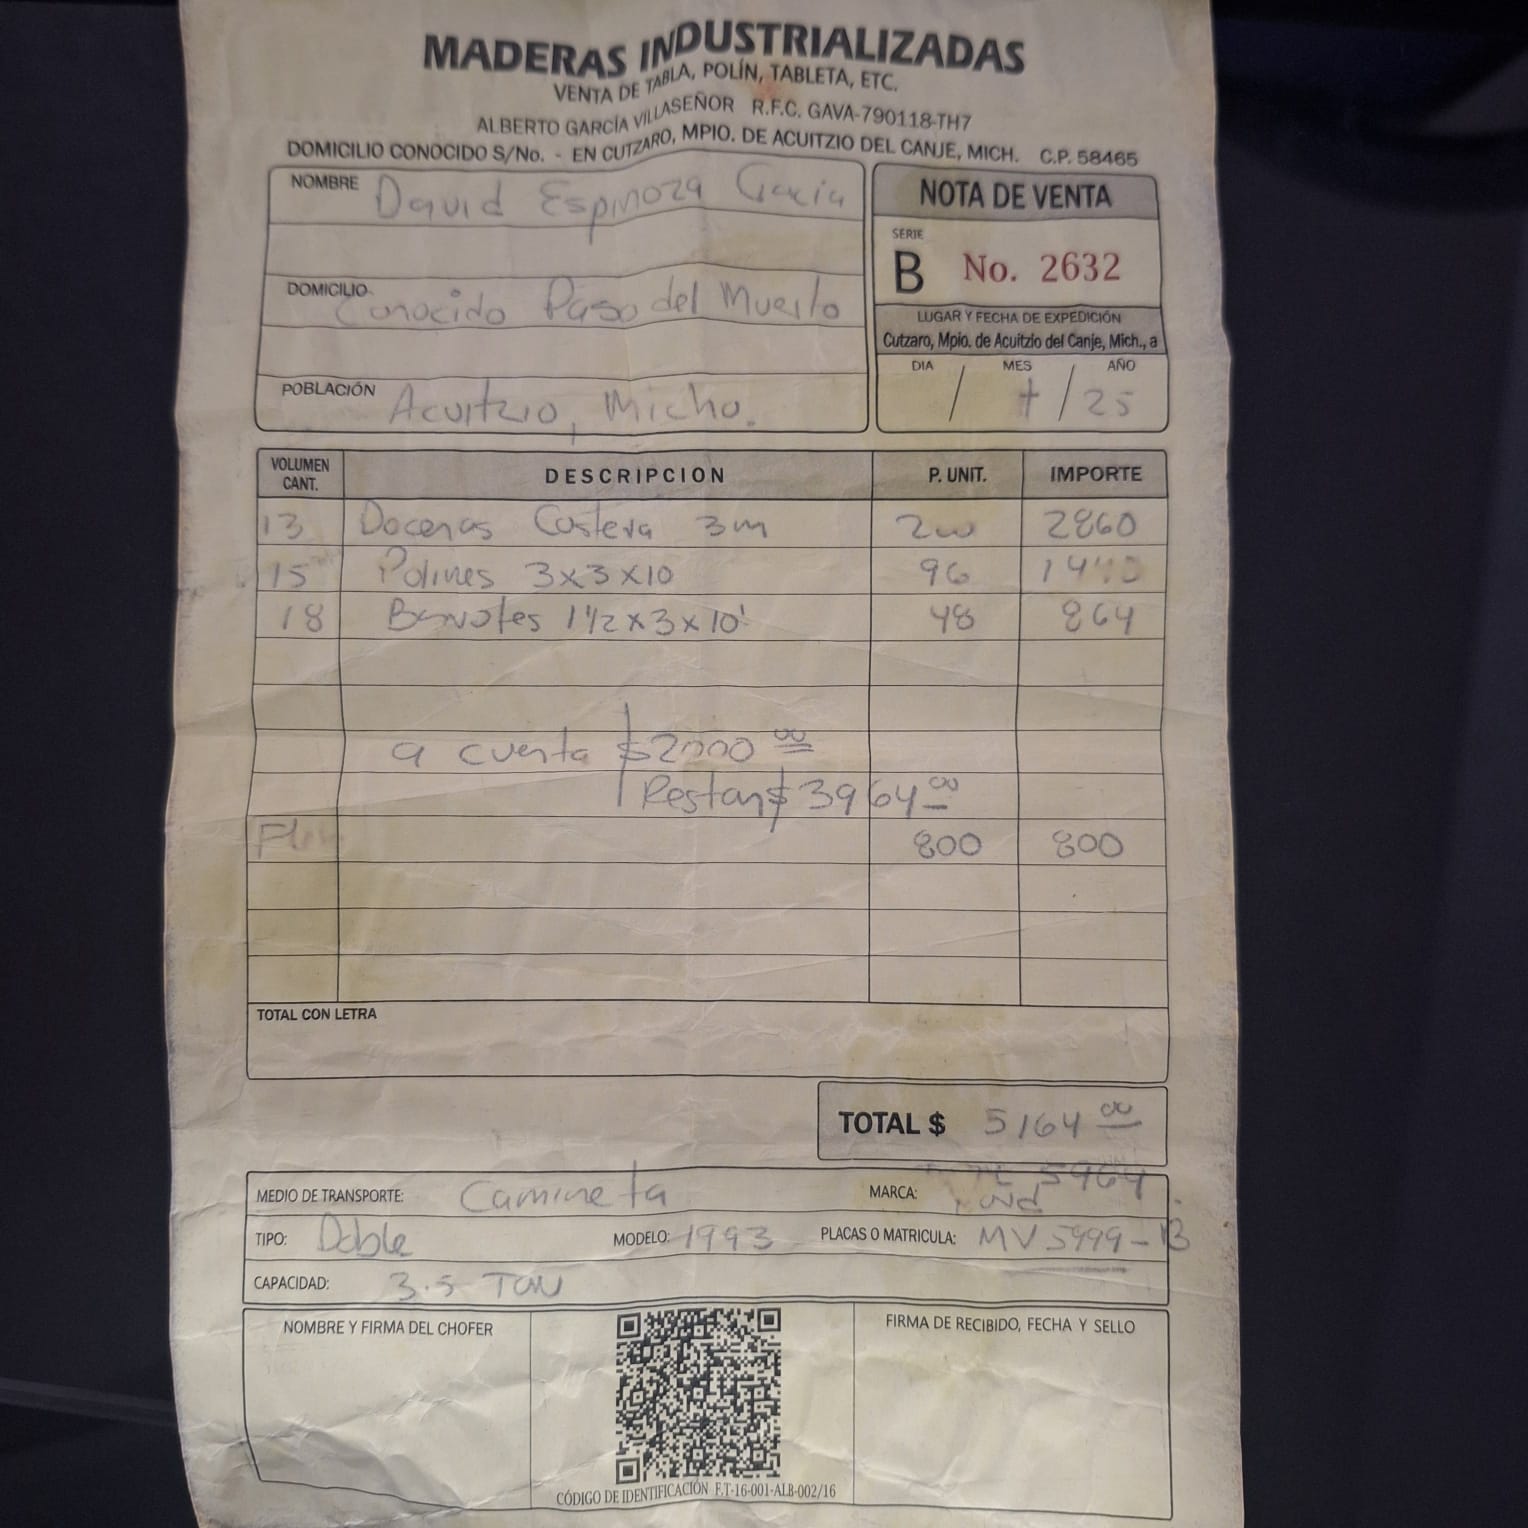 MADERAS INDUSTRIALIZADAS
VENTA DE TABLA, POLÍN, TABLETA, ETC.
ALBERTO GARCÍA VILLASEÑOR R.F.C. GAVA-790118-TH7
DOMICILIO CONOCIDO S/No. - EN CUTZARO, MPIO. DE ACUITZIO DEL CANJE, MICH. C.P. 58465
NOMBRE David Espinoza Gacia
NOTA DE VENTA
SERIE
B No. 2632
DOMICILIO Conocido Paso del Muerto
LUGAR Y FECHA DE EXPEDICIÓN
Cutzaro, Mpio. de Acuitzio del Canje, Mich., a
DIA MES AÑO
/ / 25
POBLACIÓN Acuitzio, Micho.
VOLUMEN CANT. DESCRIPCION P. UNIT. IMPORTE
13 Docenas Costera 3m 2860
15 Polines 3x3x10 96 1440
18 Barrotes 1 1/2 x 3 x 10' 48 864
a cuenta $2000 00
Restan $ 3964 00
800 800
TOTAL CON LETRA
TOTAL $ 5164 00
5964
MEDIO DE TRANSPORTE: Camineta MARCA: Ford
TIPO: Doble MODELO: 1993 PLACAS O MATRICULA: MV 5999-B
CAPACIDAD: 3.5 TON
NOMBRE Y FIRMA DEL CHOFER
FIRMA DE RECIBIDO, FECHA Y SELLO
CÓDIGO DE IDENTIFICACIÓN F.T-16-001-ALB-002/16